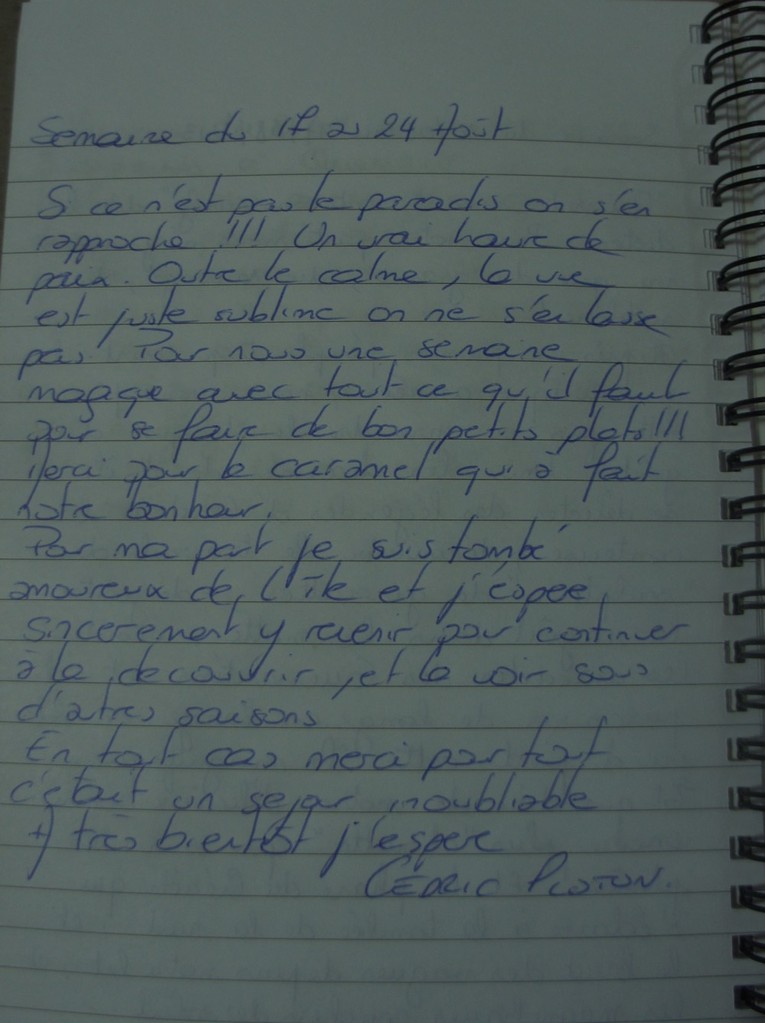 Semaine du 17 au 24 Août
Si ce n'est pas le paradis on s'en
rapproche !!! Un vrai havre de
paix. Outre le calme, la vue
est juste sublime on ne s'en lasse
pas. Pour nous une semaine
magique avec tout ce qu'il faut
pour se faire de bon petits plats !!!
Merci pour le caramel qui à fait
notre bonheur.
Pour ma part je suis tombé
amoureux de l'île et j'éspere
sincerement y revenir pour continuer
à la decouvrir, et la voir sous
d'autres saisons
En tout cas merci pour tout
c'etait un sejour inoubliable
A très bientôt j'espere
CÉDRIC